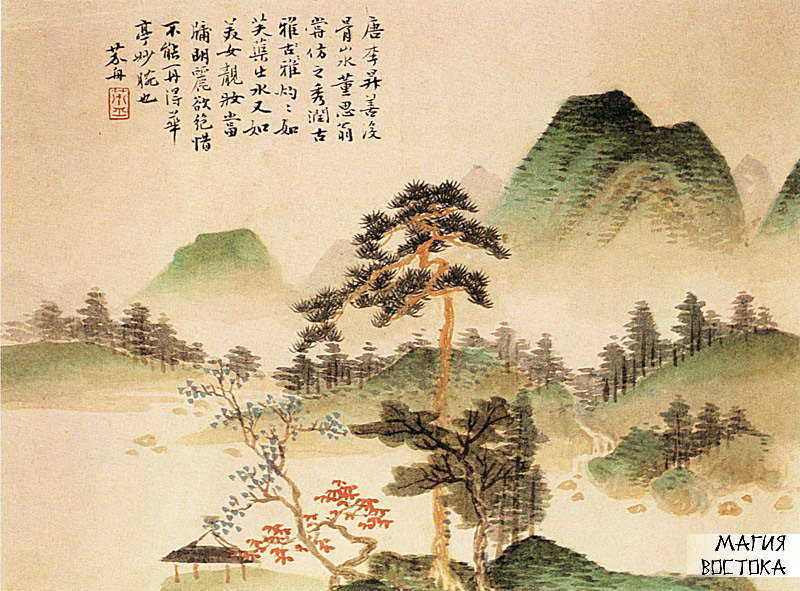 唐李昇善沒
骨山水董思翁
嘗仿之秀潤古
雅古雅灼〻如
芙蕖出水又如
美女靚妝當
牖明麗欲絕惜
不能再得華
亭妙腕也
芥舟
МАГИЯ
ВОСТОКА